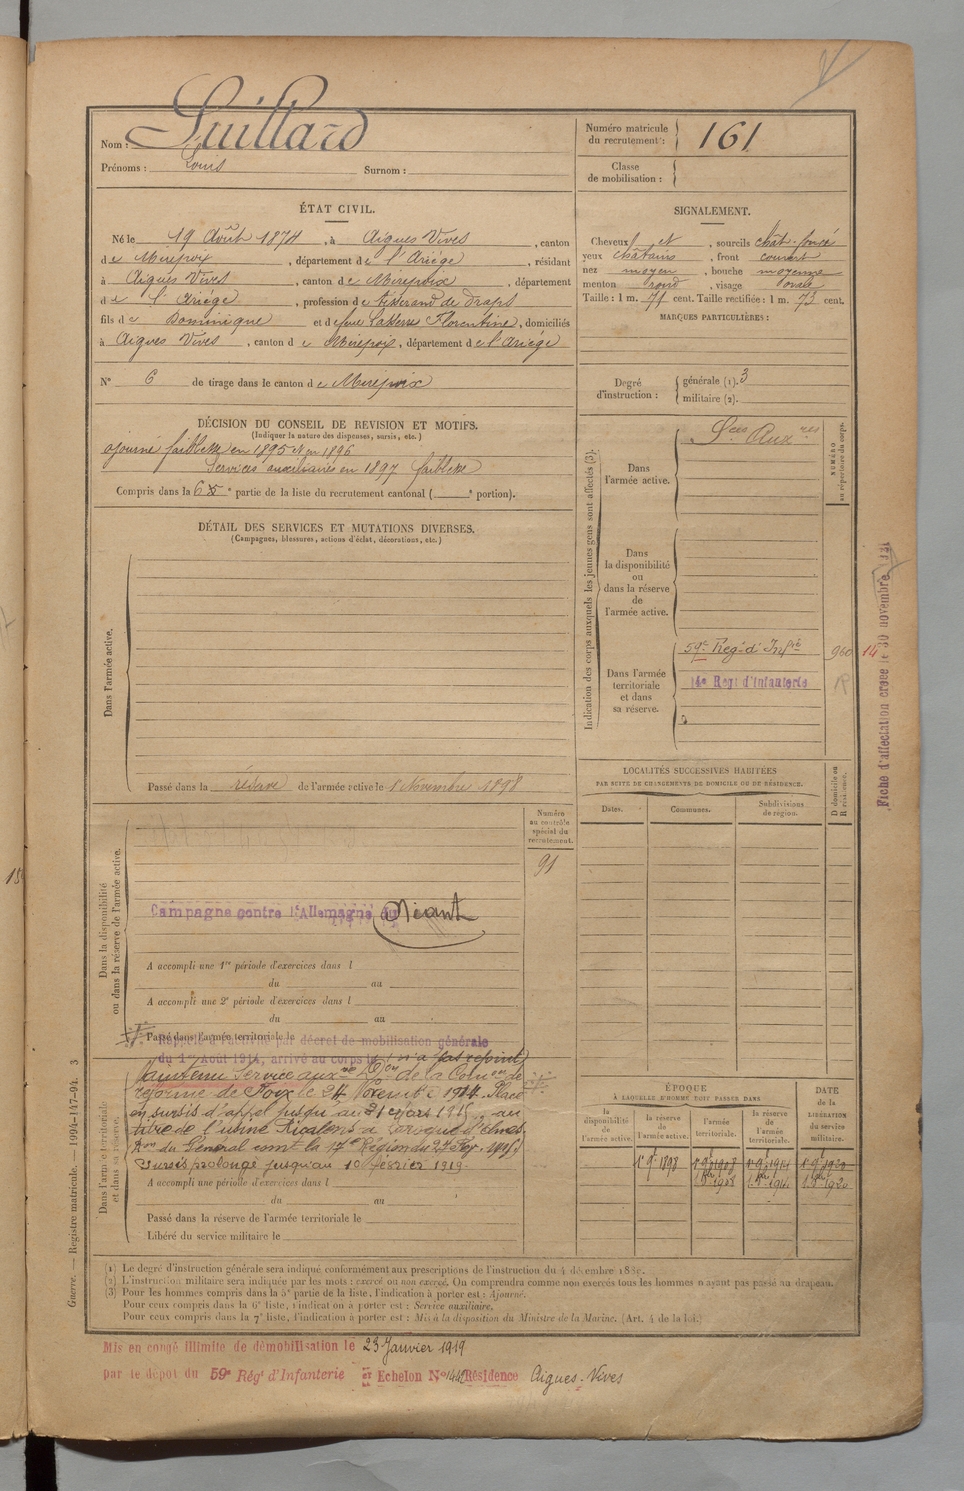 Nom : Guillard
Prénoms : Louis Surnom :
Numéro matricule du recrutement : 161
Classe de mobilisation :
ÉTAT CIVIL.
Né le 19 Août 1874, à Aigues Vives, canton
de Mirepoix, département de l'Ariége, résidant
à Aigues Vives, canton de Mirepoix, département
de l'Ariége, profession de tisserand de draps
fils de Dominique et de feue Lasserre Florentine, domiciliés
à Aigues Vives, canton de Mirepoix, département de l'Ariége
N° 6 de tirage dans le canton de Mirepoix
SIGNALEMENT.
Cheveux et, sourcils chât. foncé
yeux châtains, front couvert
nez moyen, bouche moyenne
menton rond, visage ovale
Taille : 1 m. 71 cent. Taille rectifiée : 1 m. 73 cent.
MARQUES PARTICULIÈRES :
Degré d'instruction : générale (1). 3
militaire (2).
DÉCISION DU CONSEIL DE REVISION ET MOTIFS.
(Indiquer la nature des dispenses, sursis, etc.)
ajourné faiblesse en 1895 et en 1896
Services auxiliaires en 1897 faiblesse
Compris dans la 6 e partie de la liste du recrutement cantonal ( e portion).
DÉTAIL DES SERVICES ET MUTATIONS DIVERSES.
(Campagnes, blessures, actions d'éclat, décorations, etc.)
Dans l'armée active.
Passé dans la réserve de l'armée active le 1 Novembre 1898
Indication des corps auxquels les jeunes gens sont affectés (3).
NUMÉRO au répertoire du corps.
Dans l'armée active.
Sces Auxres
Dans la disponibilité ou dans la réserve de l'armée active.
Dans l'armée territoriale et dans sa réserve.
59e Reg. d'Infrie 960 14
14e Regt d'Infanterie
Fiche d'affectation créée le 30 novembre
LOCALITÉS SUCCESSIVES HABITÉES
PAR SUITE DE CHANGEMENTS DE DOMICILE OU DE RÉSIDENCE.
Dates. Communes. Subdivisions de région. D domicile ou R résidence.
Numéro au contrôle spécial du recrutement.
91
Dans la disponibilité ou dans la réserve de l'armée active.
Campagne contre l'Allemagne du Néant
A accompli une 1re période d'exercices dans l
du au
A accompli une 2e période d'exercices dans l
du au
Passé dans l'armée territoriale le
Rappelé à l'activité par décret de mobilisation générale
du 1er Août 1914, arrivé au corps le (n'a pas rejoint)
Dans l'armée territoriale et dans sa réserve.
Maintenu Service auxre Don de la Comon de
réforme de Foix le 24 Novembre 1914. Placé
en sursis d'appel jusqu'au 31 mars 1915, au
titre de l'usine Ricalens à Laroque d'Olmes,
Don du Général comt la 17e Région du 27 Fev. 1915
Sursis prolongé jusqu'au 10 février 1919.
A accompli une période d'exercices dans l
du au
Passé dans la réserve de l'armée territoriale le
Libéré du service militaire le
ÉPOQUE
À LAQUELLE L'HOMME DOIT PASSER DANS
DATE de la LIBÉRATION du service militaire.
la disponibilité de l'armée active. la réserve de l'armée active. l'armée territoriale. la réserve de l'armée territoriale.
1er 9bre 1898 1er 9bre 1908 1er 9bre 1914 1er 9bre 1920
1. 8bre 1908 1. 8bre 1914 1. 8bre 1920
(1) Le degré d'instruction générale sera indiqué conformément aux prescriptions de l'instruction du 4 décembre 1889.
(2) L'instruction militaire sera indiquée par les mots : exercé ou non exercé. On comprendra comme non exercés tous les hommes n'ayant pas passé au drapeau.
(3) Pour les hommes compris dans la 5e partie de la liste, l'indication à porter est : Ajourné.
Pour ceux compris dans la 6e liste, l'indication à porter est : Service auxiliaire.
Pour ceux compris dans la 7e liste, l'indication à porter est : Mis à la disposition du Ministre de la Marine. (Art. 4 de la loi.)
Guerre. — Registre matricule. — 1994-147-94. 3
Mis en congé illimité de démobilisation le 23 Janvier 1919
par le dépôt du 59e Régt d'Infanterie 1er Echelon N° 1442 Résidence Aigues-Vives